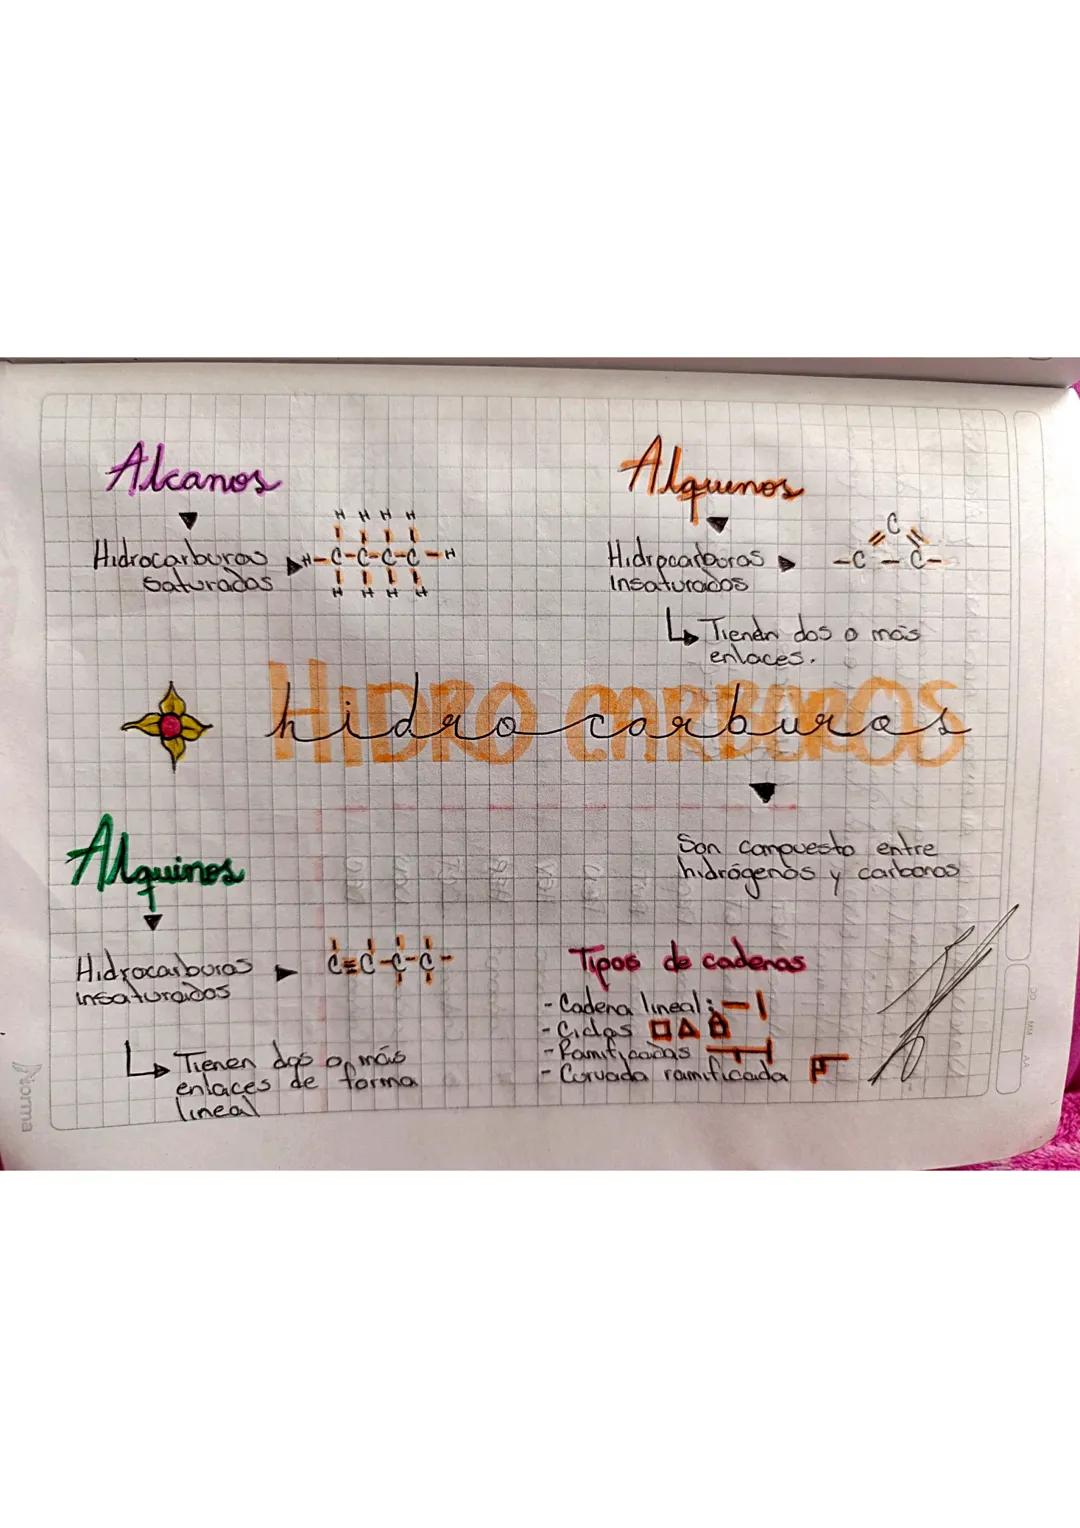 Alcanos
Hidrocarburos
Saturados
H H H H
H-C-C-C-C-H
H H H H
Alquenos
Hidrocarburos
Insaturados
C
-C-C-
Tienen dos o más
enlaces.
HIDROCARBUROS
hidrocarburos
Son compuesto entre
hidrógenos y carbonos
Alquinos
Hidrocarburos
insaturados
C≡C-C-C-
Tienen dos o más
enlaces de forma
lineal
Tipos de cadenas
- Cadena lineal:
- Ciclos
- Ramificadas
- Curvada ramificada
Norma